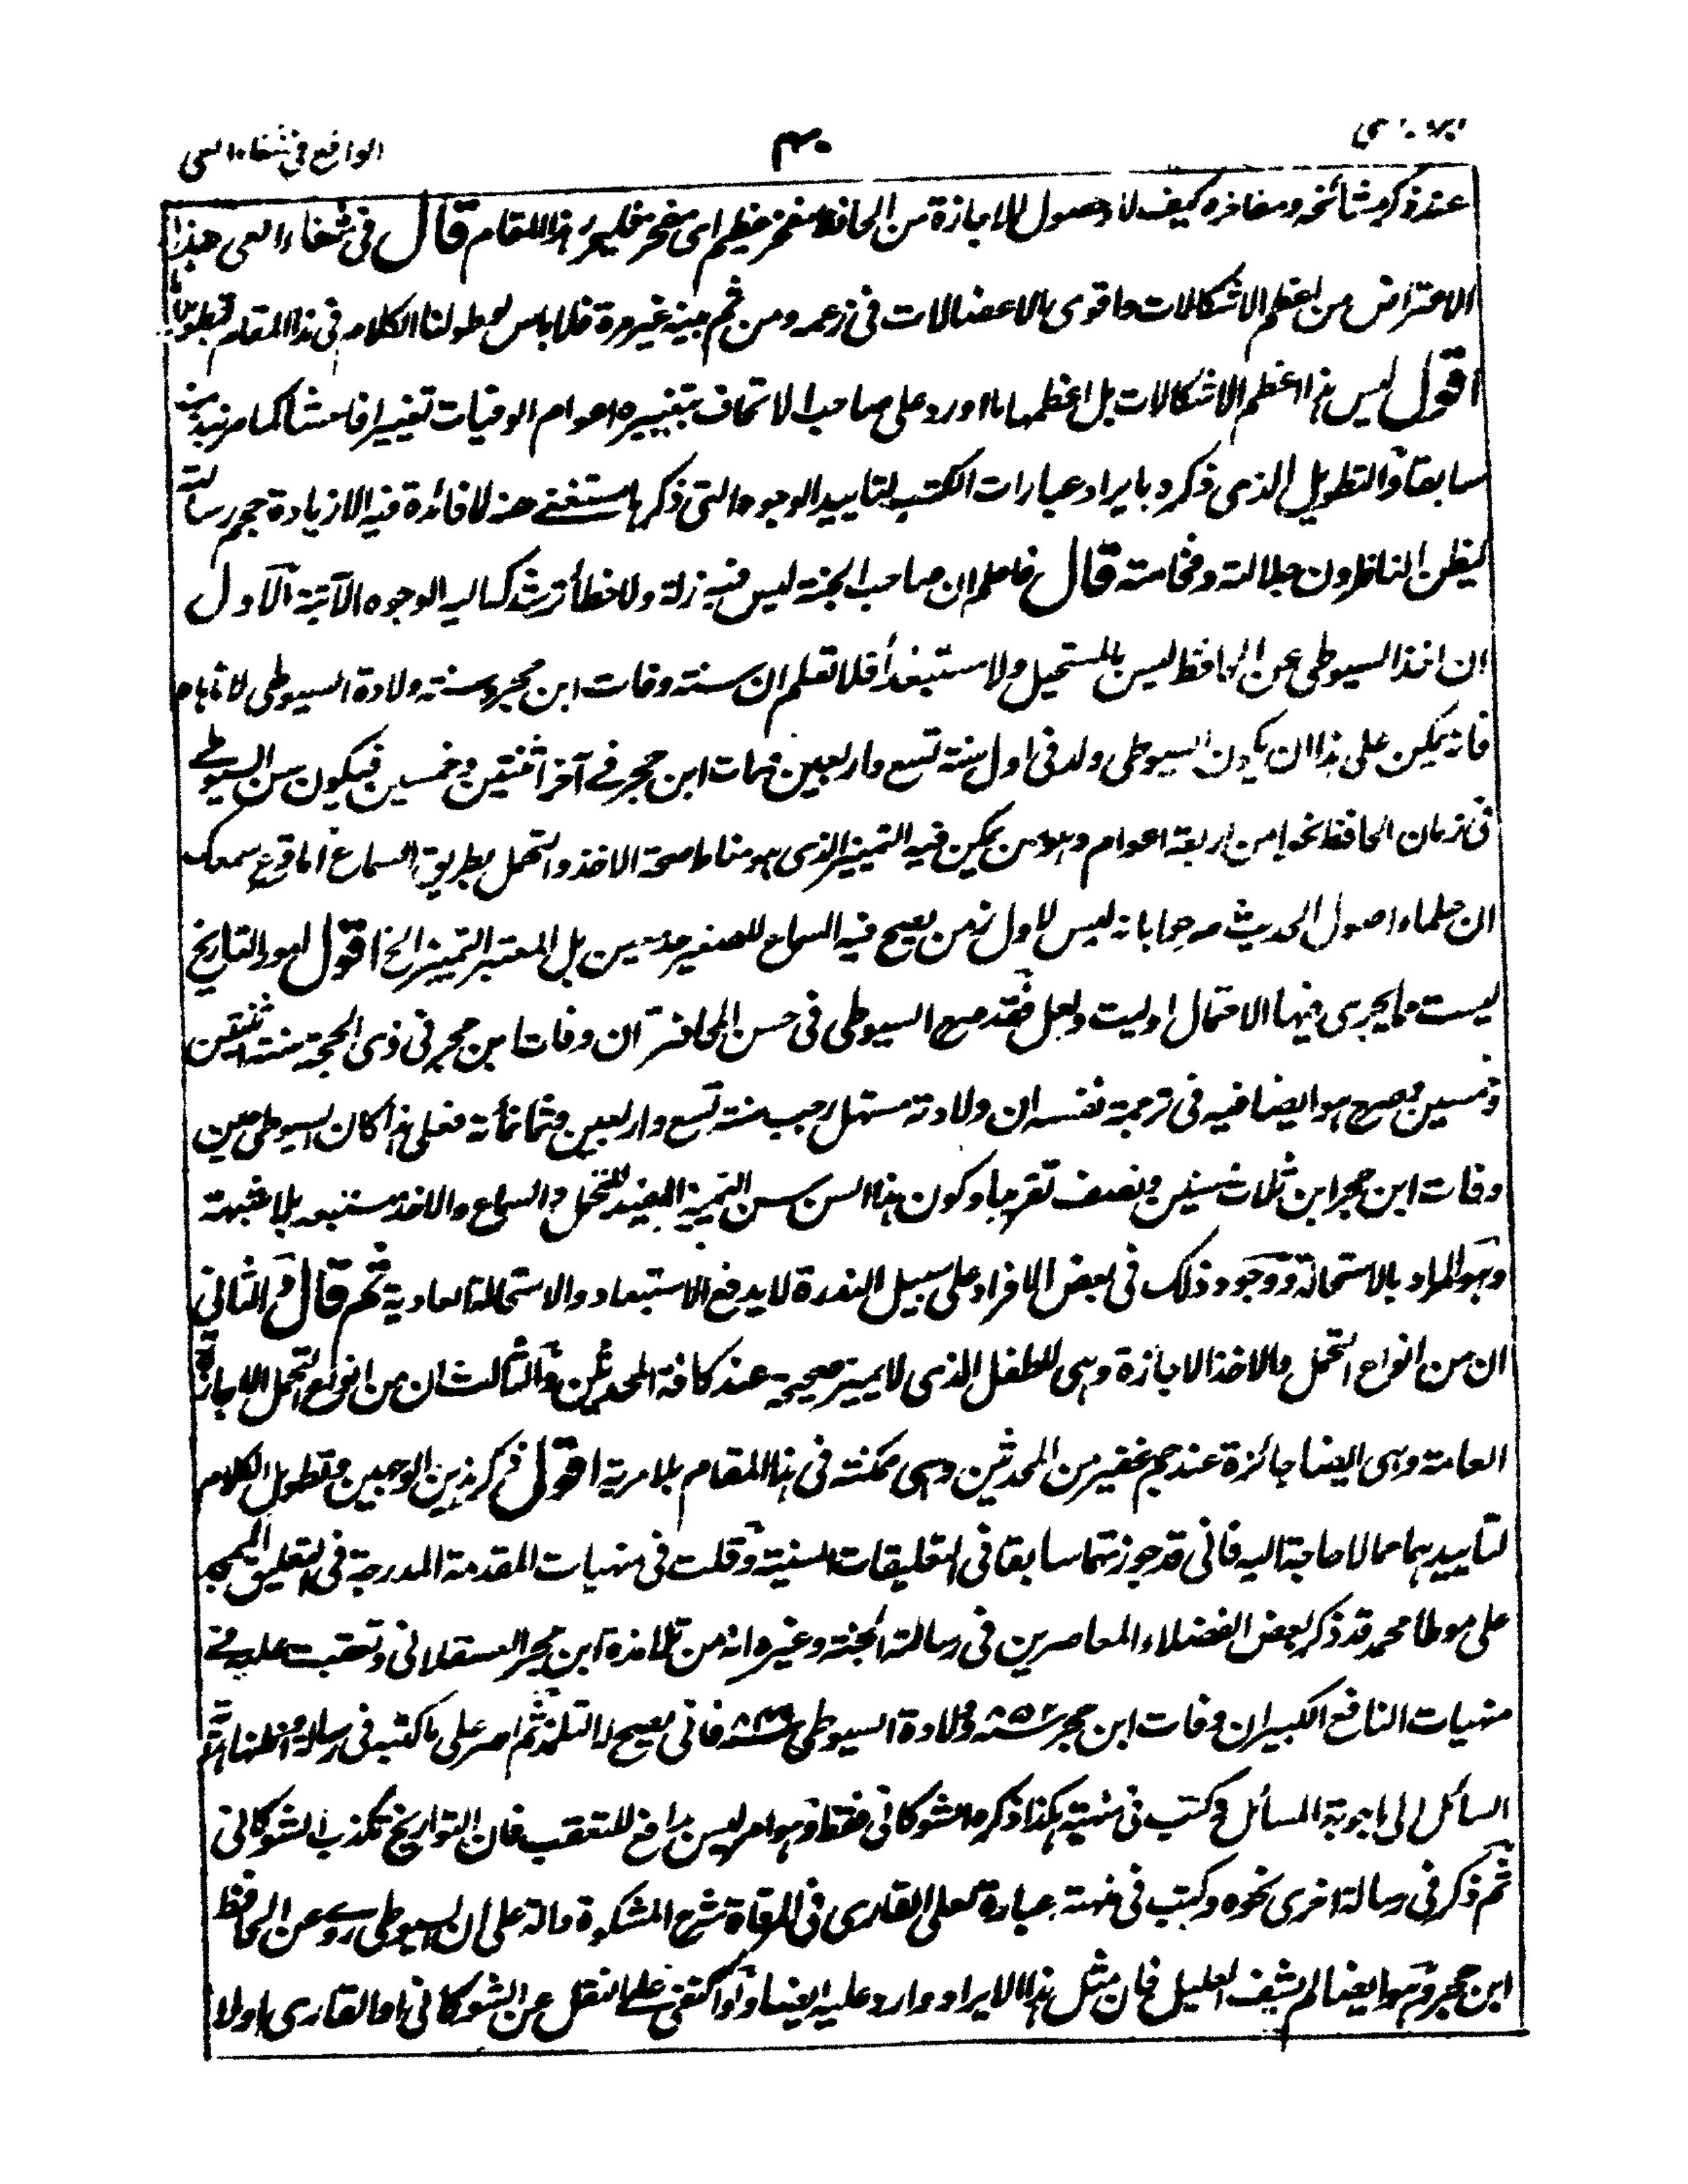 الواقع فى شفاء العى
٤٠
عند ذكر مشائخه ومفاخره كيف لا وحصول الاجازة من الحافظ مفخر عظيم اى مفخر فليحرر هذا المقام قال فى شفاء العى هذا
الاعتراض من اعظم الاشكالات واقوى بالاعضالات فى زعمه ومن ثم بينه غير مرة فلا باس لو طولنا الكلام فى هذا المقام
اقول ليس هذا اعظم الاشكالات بل اعظمها ما اورد على صاحب الاتحاف بتغييره اعوام الوفيات تغييرا فاحشا كما مر نبذ منه
سابقا والتطويل الذى ذكره بايراد عبارات الكتب لتاييد الوجوه التى ذكرها مستغنى عنه لا فائدة فيه الا زيادة حجم رسالته
ليظن الناظرون جلالته وفخامته قال فاعلم ان صاحب الجنة ليس فيه زلة ولا خطأ ترشدك اليه الوجوه الآتية الاول
ان اخذ السيوطى عن الحافظ ليس بالمستحيل ولا مستبعد أفلا تعلم ان سنة وفات ابن حجر وسنة ولادة السيوطى
فانه يمكن على هذا ان يكون السيوطى ولد فى اول سنة تسع واربعين ومات ابن حجر فے آخر اثنتين وخمسين فيكون سن السيوطے
فى زمان الحافظ نحوا من اربعة اعوام وهو سن يمكن فيه التمييز الذى هو مناط صحة الاخذ والتحمل بطريق السماع اما قرع سمعك
ان علماء اصول الحديث صرحوا بانه ليس لاول زمن يصح فيه السماع للصغير حد معين بل المعتبر التمييز الخ اقول امور التاريخ
ليست مما يجرى فيها الاحتمال او ليت ولعل فقد صرح السيوطى فى حسن المحاضرة ان وفات ابن حجر فى ذى الحجة سنة ثنتين
وخمسين وصرح هو ايضا فيه فى ترجمة نفسه ان ولادته مستهل رجب سنة تسع واربعين وثمانمأية فعلى هذا كان السيوطى حين
وفات ابن حجر ابن ثلاث سنين ونصف تقريبا وكون هذا السن سن التمييز المفيد للتحمل والسماع والاخذ مستبعد بلا شبهة
وهو المراد بالاستحالة ووجود ذلك فى بعض الافراد على سبيل الندرة لا يدفع الاستبعاد والاستحالة العادية ثم قال والثانى
ان من انواع التحمل والاخذ الاجازة وهى للطفل الذى لا يميز صحيحة عند كافة المحدثين والثالث ان من انواع التحمل الاجازة
العامة وهى ايضا جائزة عند جم غفير من المحدثين وهى ممكنة فى هذا المقام بلا مرية اقول ذكر هذين الوجهين وتطويل الكلام
لتاييدهما مما لا حاجة اليه فانى قد جوزتهما سابقا فى التعليقات السنية وقلت فى منهيات المقدمة المدرجة فى التعليق الممجد
على موطا محمد قد ذكر بعض الفضلاء المعاصرين فى رسالته الجنة وغيره انه من تلامذة ابن حجر العسقلانى وتعقبت عليه فے
منهيات النافع الكبير ان وفات ابن حجر سنة ٨٥٢ وولادة السيوطى سنة ٨٤٩ فانى يصح له التلمذ ثم اصر على ما كتبه فى
السائل الى اجوبة المسائل وكتب فى منهيته هكذا ذكره الشوكانى فقط وهو امر ليس بدافع للتعقب فان التواريخ تكذب الشوكانى
ثم ذكر فى رسالة اخرى نحوه وكتب فى منهية عبارة لعلى القارى فى المرقاة شرح المشكوة دالة على ان السيوطى روى عن الحافظ
ابن حجر وهو ايضا لم يشف العليل فان مثل هذا الايراد وارد عليه ايضا ولو اكتفى على النقل عن الشوكانى او القارى اولا